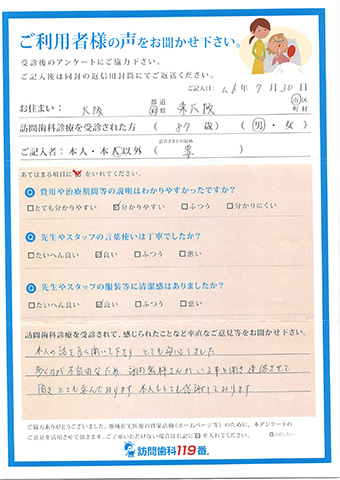 ご利用者様の声をお聞かせ下さい。
受診後のアンケートにご協力下さい。
ご記入後は同封の返信用封筒にてご返送ください。
ご記入日: 26年 7月 30日
お住まい: 大阪 都道府県 東大阪 市区町村
訪問歯科診療を受診された方 ( 87 歳) (男・女)
ご記入者: 本人・本人以外 ( 妻 )
あてはまる項目に☑をいれてください。
Q 費用や治療期間等の説明はわかりやすかったですか?
□とても分かりやすい ☑分かりやすい □ふつう □分かりにくい
Q 先生やスタッフの言葉使いは丁寧でしたか?
□たいへん良い ☑良い □ふつう □悪い
Q 先生やスタッフの服装等に清潔感はありましたか?
□たいへん良い ☑良い □ふつう □悪い
訪問歯科診療を受診されて、感じられたことなど率直なご意見等をお聞かせ下さい。
本人の話を良く聞いて下さり とても安心しました
歩くのが不自由なため 訪問歯科さんがいる事を聞き連絡させて
頂き とても喜んでおります 本人もとても感謝しております
ご協力ありがとうございました。地域在宅医療の啓蒙活動(ホームページ等)のために、本アンケートの
ご意見を活用させて頂きます。ご了承いただけない場合は右記に☑を入れてください。
訪問歯科119番